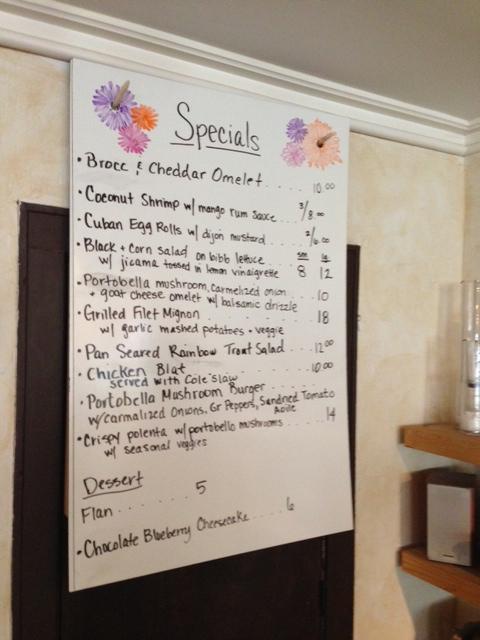 Specials
• Brocc & Cheddar Omelet .... 10.00
• Coconut Shrimp w/ mango rum sauce 3/8.00
• Cuban Egg Rolls w/ dijon mustard 2/6.00
• Black + corn salad on bibb lettuce sm lg
w/ jicama tossed in lemon vinaigrette 8 12
• Portobella mushroom, carmelized onion
+ goat cheese omelet w/ balsamic drizzle 10
• Grilled Filet Mignon ...... 18
w/ garlic mashed potatoes + veggie
• Pan Seared Rainbow Trout Salad .... 12.00
• Chicken Blat ........ 10.00
served with Cole slaw
• Portobella Mushroom Burger
w/carmalized Onions, Gr Peppers, Sundried Tomato
Aoile
• Crispy polenta w/ portobello mushrooms ..... 14
w/ seasonal veggies
Dessert
Flan ........ 5
• Chocolate Blueberry Cheesecake .... 6